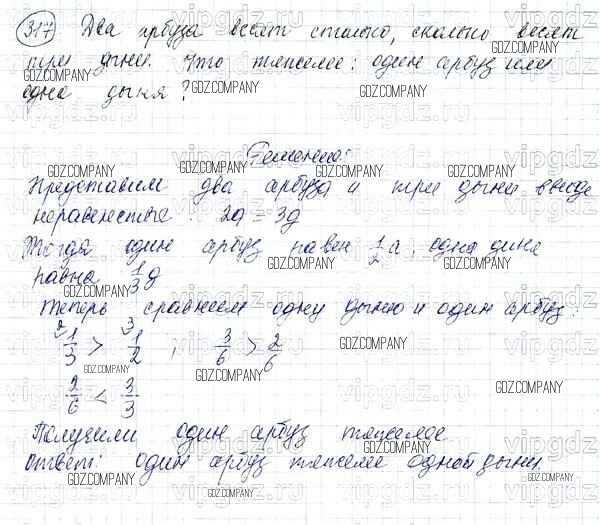 317 Два арбуза весят столько, сколько весят
три дыни. Что тяжелее: один арбуз или
одна дыня?
Решение:
Представим два арбуза и три дыни ввиде
неравенства: 2а = 3д
Тогда один арбуз равен 1/2 а, одна дыня
равна 1/3 д
Теперь сравнием одну дыню и один арбуз:
2 1/3 > 3 1/2 , 3/6 > 2/6
2/6 < 3/3
Получили один арбуз тяжелее
Ответ: один арбуз тяжелее одной дыни.
GDZ.COMPANY
vipgdz.ru